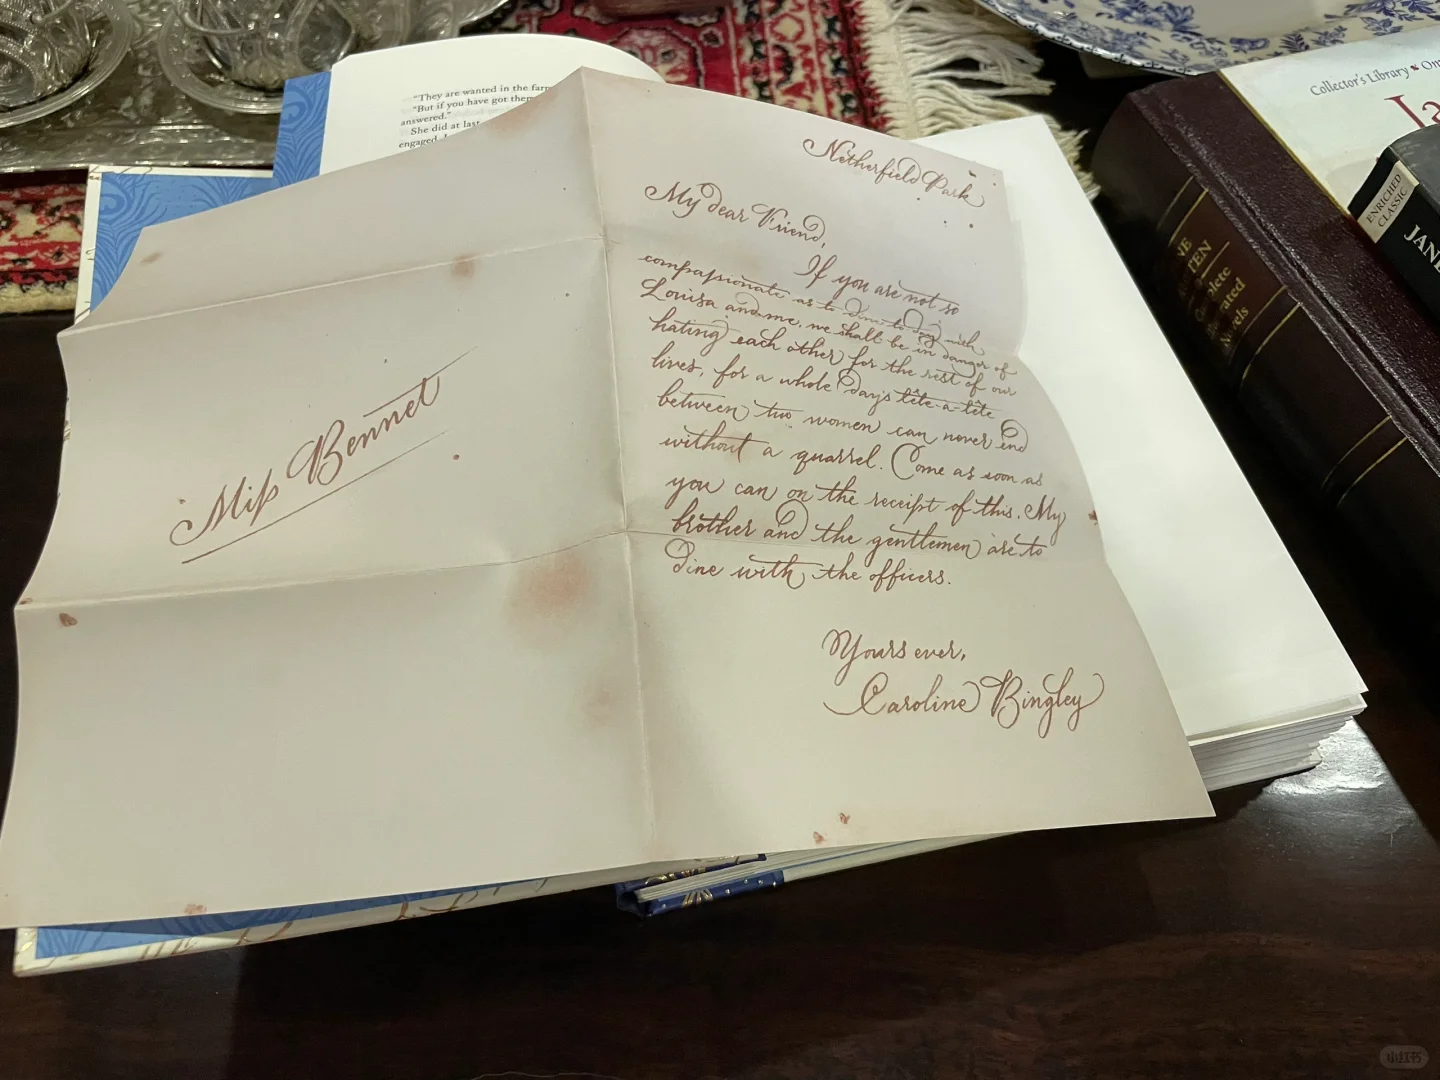 "They are wanted in the farm
"But if you have got them
answered."
She did at last
engaged.
Netherfield Park
My dear Friend,
If you are not so
compassionate as to dine to day with
Louisa and me, we shall be in danger of
hating each other for the rest of our
lives, for a whole day's tête-a-tête
between two women can never end
without a quarrel. Come as soon as
you can on the receipt of this. My
brother and the gentlemen are to
dine with the officers.
Yours ever,
Caroline Bingley
Miſs Bennet
Collector's Library
ENRICHED
CLASSIC
JANE
小红书